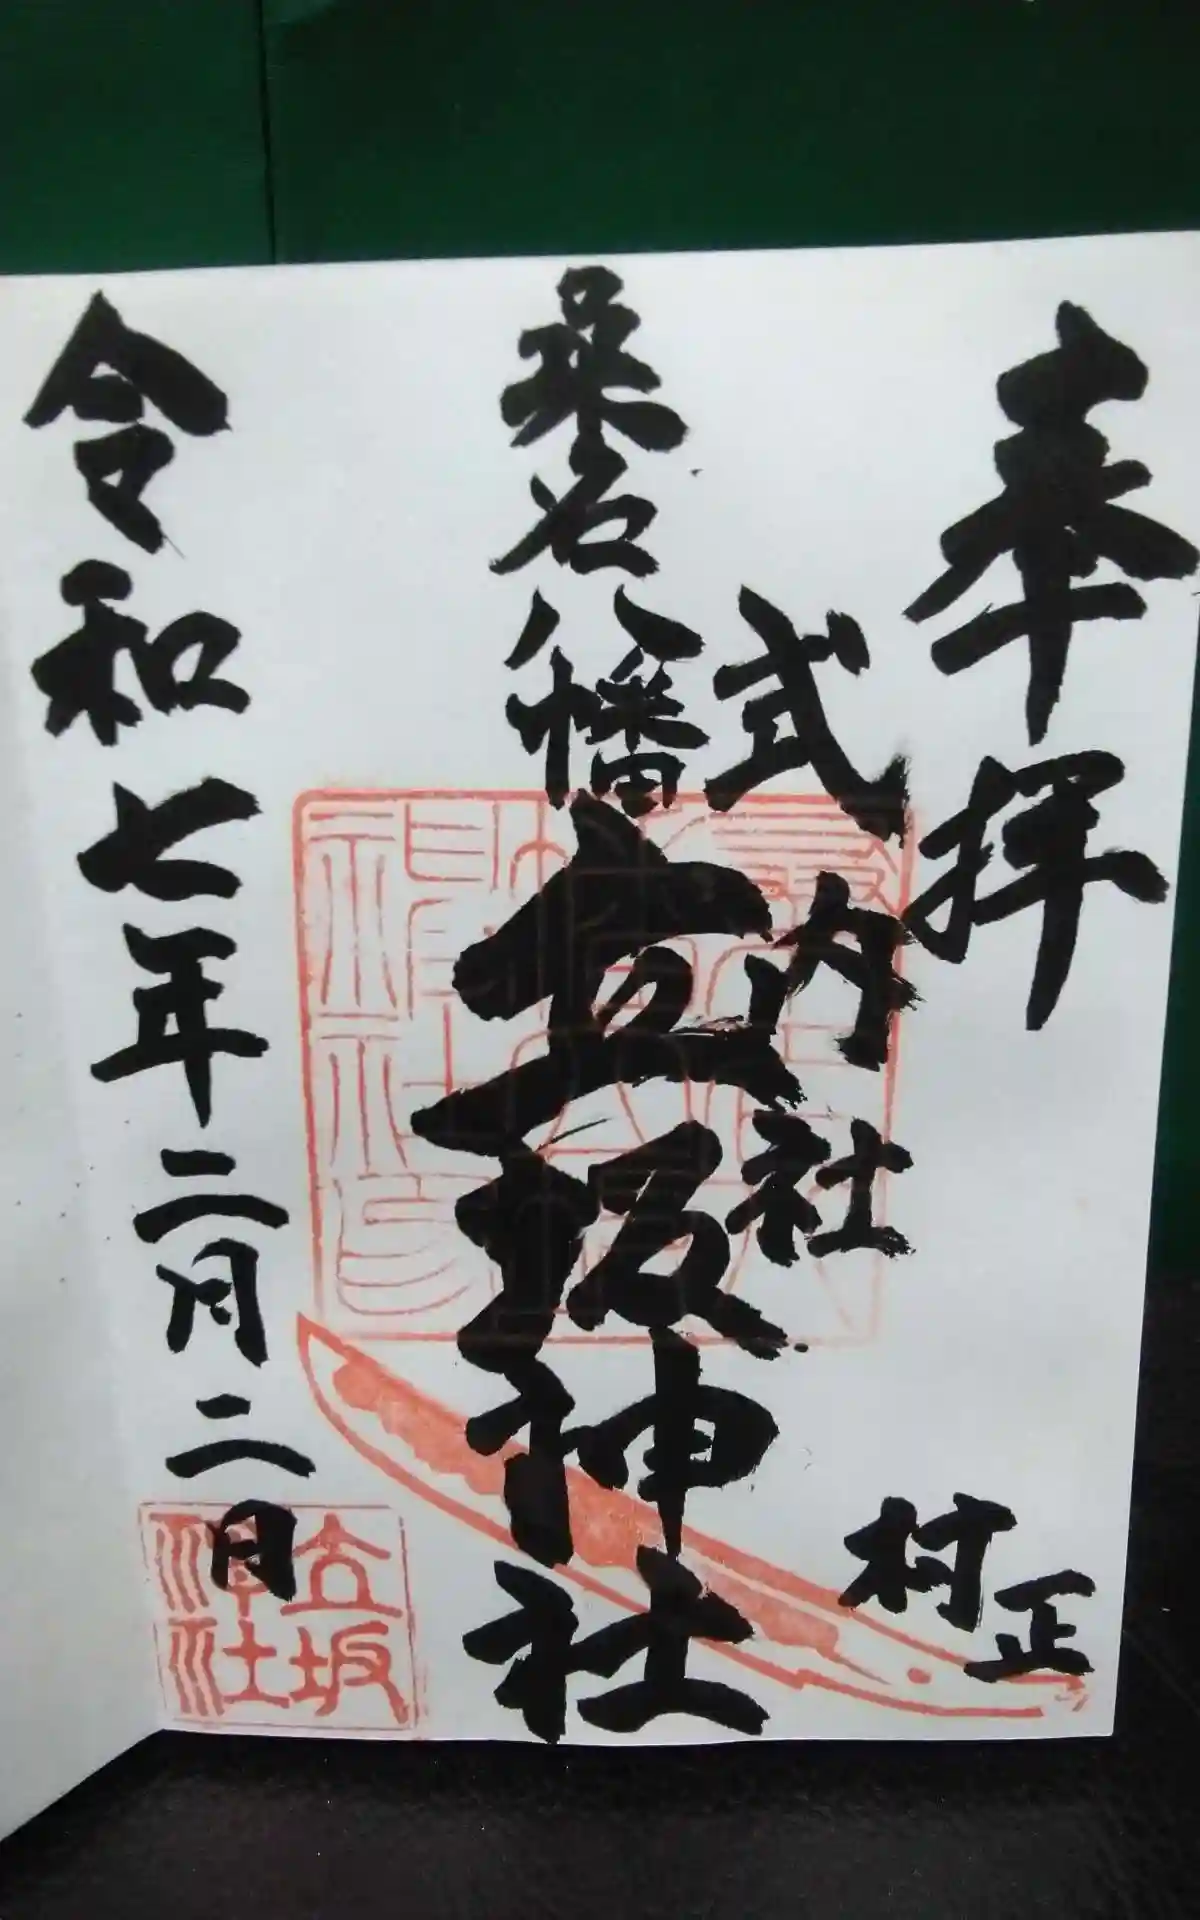 奉拝
村正
式内社
桑名八幡
立坂神社
令和七年二月二日
立坂
神社